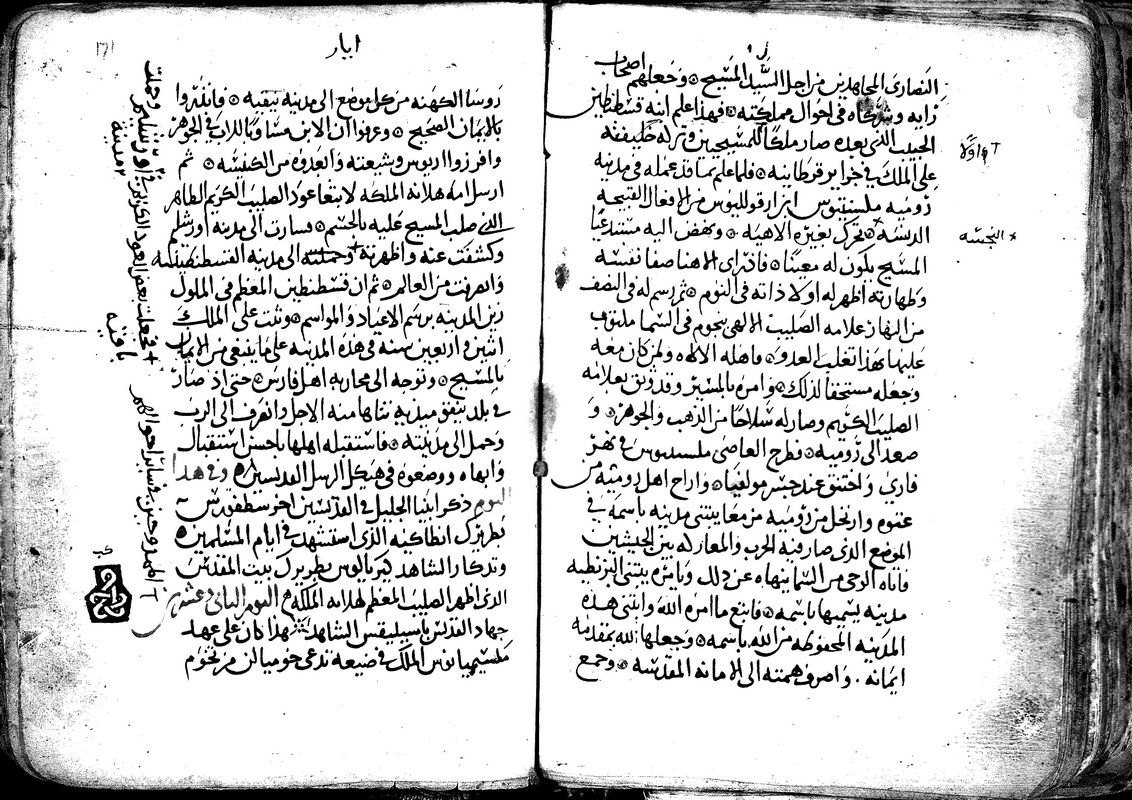 النصارى المجاهدين من اجل السيد المسيح ۞ وجعلهم اصحاب
رايه وشركاه في احوال مملكته ۞ فهذا اعلم ابنه قسطنطين
الحبيب الذي بعده صار ملكا للمسيحيين وتركه خليفته
على الملك في جزاير قرطانيه ۞ فلما علم بما قد عمله في مدينه
روميه مكسنتيوس ابن ارقوليوس من الافعال القبيحه
الدنسه ۞ تحرك بغيره الاهيه ۞ ونهض اليه مستدعيا
المسيح يكون له معينا ۞ فاذ راى الاهنا صفا نفسه
وطهارته اظهر له اولا ذاته في النوم ۞ ثم رسم له في النصف
من النهار علامه الصليب الالهي بنجوم في السما مكتوب
عليها بهذا تغلب العدو ۞ فاهله الاله ولمن كان معه
وجعله مستحقا لذلك ۞ وامره بالمسير وقد وثق بعلامه
الصليب الكريم وصار له سلاحا من الذهب والجوهر ۞ و
صعد الى روميه ۞ فطرح العاصي مكسنتيوس في نهر
واختنق عند جسر مولفيا ۞ واراح اهل روميه من
عتوه وارتحل من روميه مزمعا يبتني مدينه باسمه في
الموضع الذي صار فيه الحرب والمعاركه بين الجيشين
فاتاه الوحي من السما ينهاه عن ذلك ويامره يبتني البزنطيه
مدينه يسميها باسمه ۞ فاتبع ما امره الله وابتنى هذه
المدينه المحفوظه من الله باسمه ۞ وجعلها لله بمقدمه
ايمانه . واصرف همته الى الامانه المقدسه ۞ وجمع
واولا
النجسه
ايار
روسا الكهنه من كل موضع الى مدينه نيقيه ۞ فانذروا
بالايمان الصحيح ۞ وعرفوا ان الابن مساويا للاب في الجوهر
وافرزوا اريوس وشيعته وابعدوه من الكنيسه ۞ ثم
ارسل امه هلانه الملكه لابتغا عود الصليب الكريم الطاهر
الذي صلب المسيح عليه بالجسم ۞ فسارت الى مدينه اورشلم
وكشفت عنه واظهرته وحملته الى مدينه القسطنطينيه
وانصرفت من العالم ۞ ثم ان قسطنطين المعظم في الملوك
زين المدينه برسم الاعياد والمواسم ۞ وثبت على الملك
اثنين واربعين سنه في هذه المدينه على ما ينبغي من الايمان
بالمسيح ۞ وتوجه الى محاربه اهل فارس ۞ حتى اذ صار
في بلد نيقوميذيه تناهى منه الاجل وانصرف الى الرب
وحمل الى مدينته ۞ فاستقبله اهلها باحسن استقبال
وابهاه ووضعوه في هيكل الرسل القديسين ۞ وفي هدا
اليوم ذكر ابينا الجليل في القديسين اخرسطفورس
بطريرك انطاكيه الذي استشهد في ايام المسلمين ۞
وتذكار الشاهد كيرياكوس بطريرك بيت المقدس
الذي اظهر الصليب المعظم لهلانه الملكه ۞ اليوم الثاني وعشرين
جهاد القديس باسيليقس الشاهد ۞ هذا كان على عهد
مكسيميانوس الملك في ضيعه تدعى خوميالن من تخوم